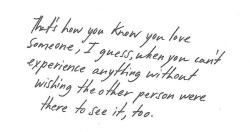 That's how you know you love
someone, I guess, when you can't
experience anything without
wishing the other person were
there to see it, too.